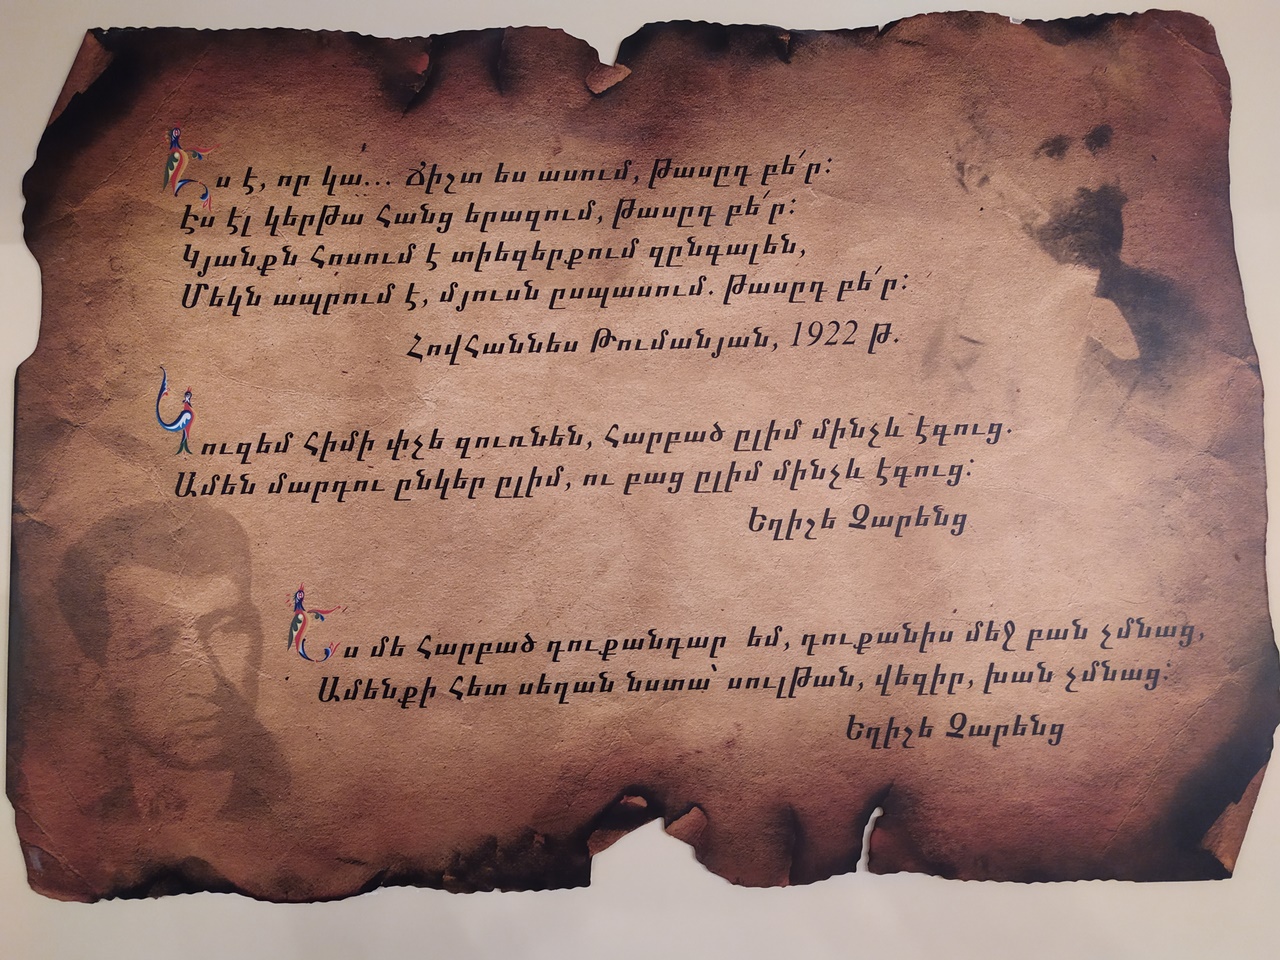 Էս է, որ կա՛... Ճիշտ ես ասում, թասըդ բե՛ր:
Էս էլ կերթա հանց երազում, թասըդ բե՛ր:
Կյանքն հոսում է տիեզերքում զընգալեն,
Մեկն ապրում է, մյուսն ըսպասում. թասըդ բե՛ր:
Հովհաննես Թումանյան, 1922 թ.
Կուզեմ հիմի փչե զուռնեն, հարբած ըլիմ մինչև էգուց.
Ամեն մարդու ընկեր ըլիմ, ու բաց ըլիմ մինչև էգուց:
Եղիշե Չարենց
Ես մե հարբած դուքանդար եմ, դուքանիս մեջ բան չմնաց,
Ամենքի հետ սեղան նստա՝ սուլթան, վեզիր, խան չմնաց:
Եղիշե Չարենց